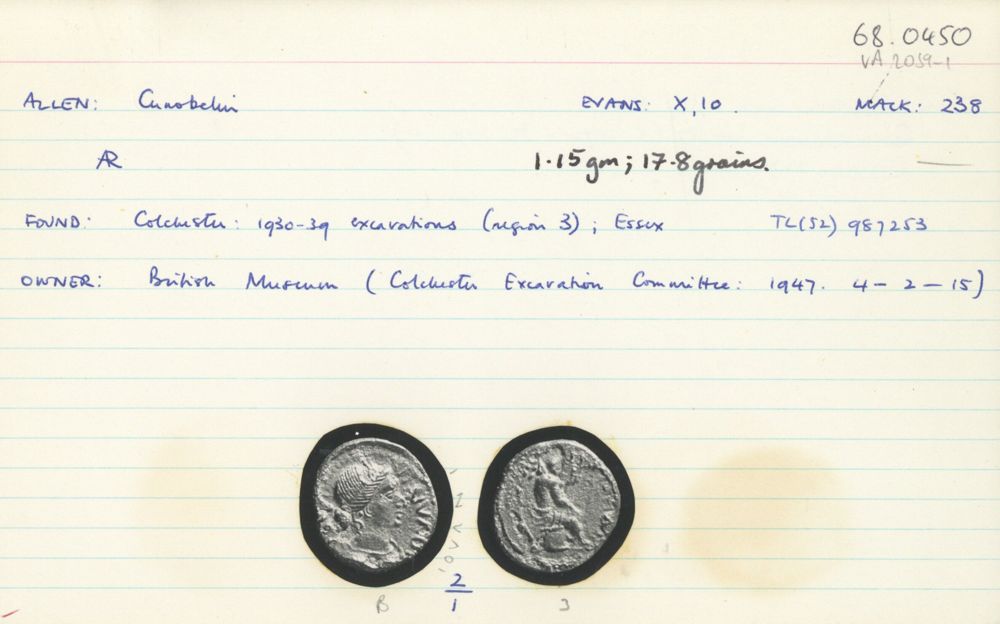 68.0450
VA 2059-1
ALLEN: Cunobelin EVANS: X, 10. MACK: 238
AR 1.15gm; 17.8grains. —
FOUND: Colchester: 1930-39 excavations (region 3); Essex TL(52) 987253
OWNER: British Museum (Colchester Excavation Committee: 1947. 4-2-15)
2
B 1 3